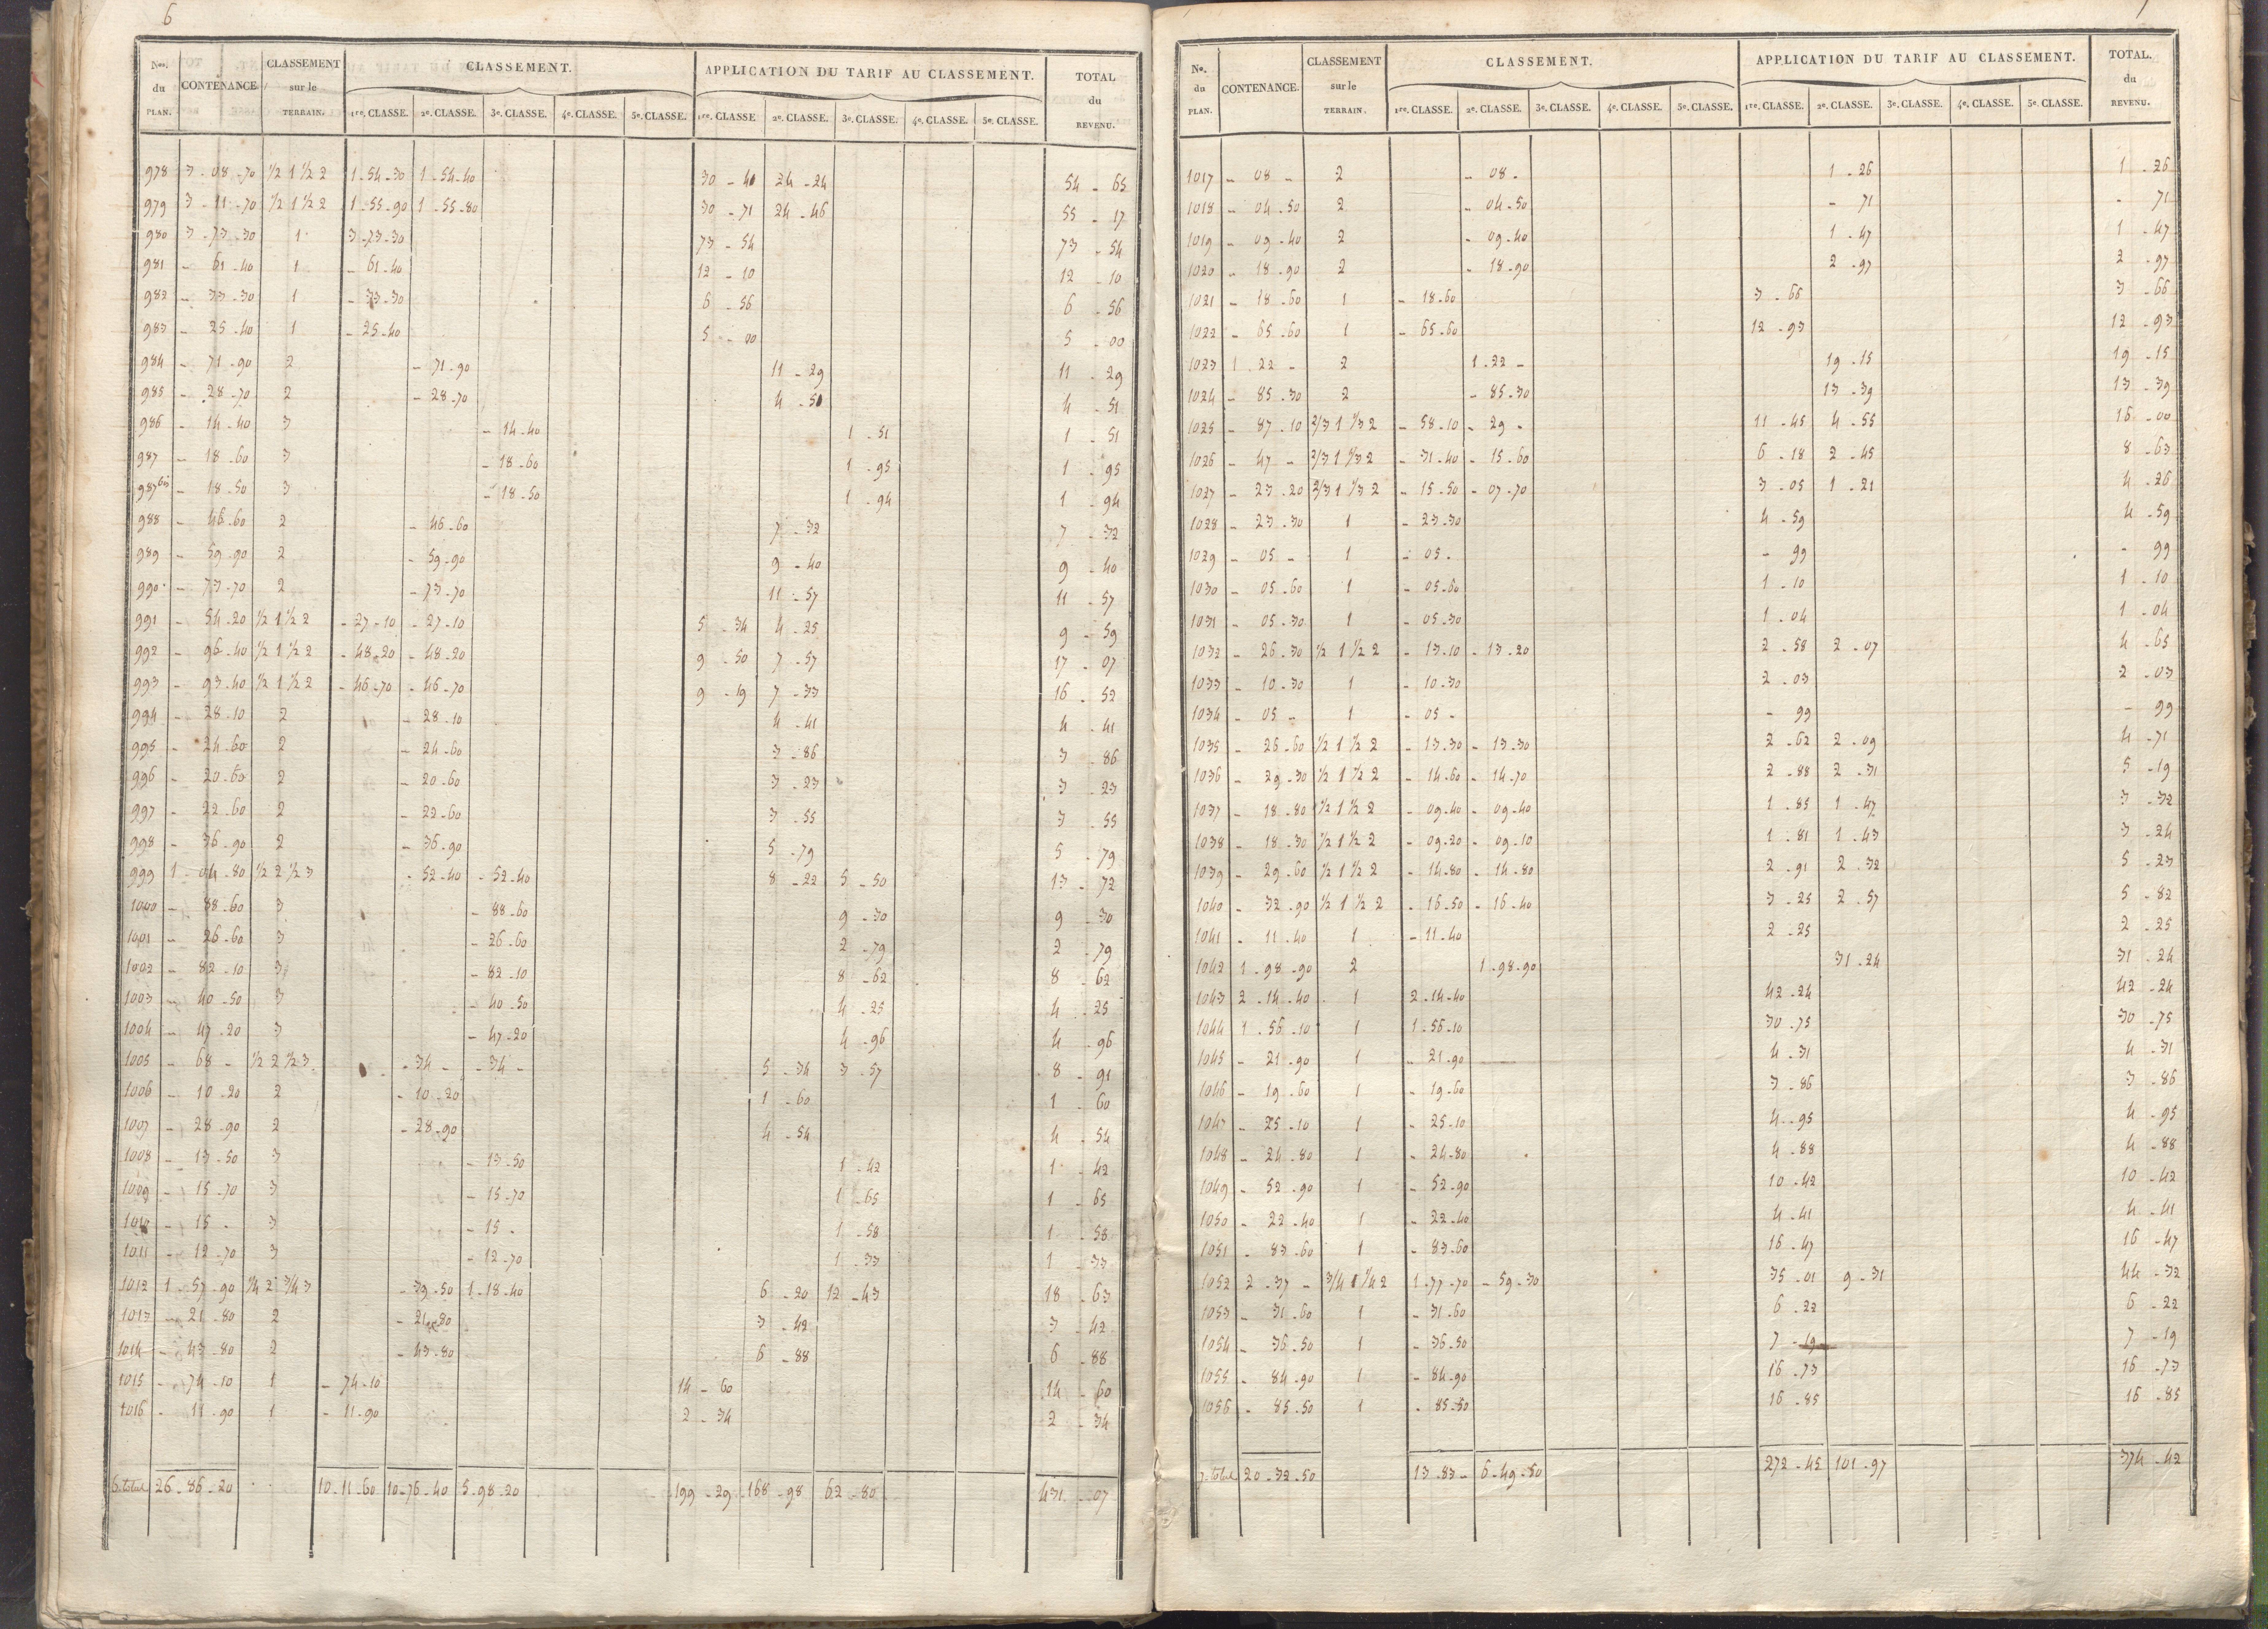 6
Nos. du PLAN. CONTENANCE CLASSEMENT sur le TERRAIN. CLASSEMENT. APPLICATION DU TARIF AU CLASSEMENT. TOTAL du REVENU.
1re. CLASSE. 2e. CLASSE. 3e. CLASSE. 4e. CLASSE. 5e. CLASSE. 1re. CLASSE 2e. CLASSE. 3e. CLASSE. 4e. CLASSE. 5e. CLASSE.
978 3 - 08 - 70 1/2 1 1/2 2 1 - 54 - 30 1 - 54 - 40 30 - 40 24 - 24 54 - 65
979 3 - 11 - 70 1/2 1 1/2 2 1 - 55 - 90 1 - 55 - 80 30 - 71 24 - 46 55 - 17
980 3 - 73 - 30 1 3 - 73 - 30 73 - 54 73 - 54
981 - 61 - 40 1 - 61 - 40 12 - 10 12 - 10
982 - 33 - 30 1 - 33 - 30 6 - 56 6 - 56
983 - 25 - 40 1 - 25 - 40 5 - 00 5 - 00
984 - 71 - 90 2 - 71 - 90 11 - 29 11 - 29
985 - 28 - 70 2 - 28 - 70 4 - 51 4 - 51
986 - 14 - 40 3 - 14 - 40 1 - 51 1 - 51
987 - 18 - 60 3 - 18 - 60 1 - 95 1 - 95
987 bis - 18 - 50 3 - 18 - 50 1 - 94 1 - 94
988 - 46 - 60 2 - 46 - 60 7 - 32 7 - 32
989 - 59 - 90 2 - 59 - 90 9 - 40 9 - 40
990 - 73 - 70 2 - 73 - 70 11 - 57 11 - 57
991 - 54 - 20 1/2 1 1/2 2 - 27 - 10 - 27 - 10 5 - 34 4 - 25 9 - 59
992 - 96 - 40 1/2 1 1/2 2 - 48 - 20 - 48 - 20 9 - 50 7 - 57 17 - 07
993 - 93 - 40 1/2 1 1/2 2 - 46 - 70 - 46 - 70 9 - 19 7 - 33 16 - 52
994 - 28 - 10 2 - 28 - 10 4 - 41 4 - 41
995 - 24 - 60 2 - 24 - 60 3 - 86 3 - 86
996 - 20 - 60 2 - 20 - 60 3 - 23 3 - 23
997 - 22 - 60 2 - 22 - 60 3 - 55 3 - 55
998 - 36 - 90 2 - 36 - 90 5 - 79 5 - 79
999 1 - 04 - 80 1/2 2 1/2 3 - 52 - 40 - 52 - 40 8 - 22 5 - 50 13 - 72
1000 - 88 - 60 3 - 88 - 60 9 - 30 9 - 30
1001 - 26 - 60 3 - 26 - 60 2 - 79 2 - 79
1002 - 82 - 10 3 - 82 - 10 8 - 62 8 - 62
1003 - 40 - 50 3 - 40 - 50 4 - 25 4 - 25
1004 - 47 - 20 3 - 47 - 20 4 - 96 4 - 96
1005 - 68 - 1/2 2 1/2 3 - 34 - - 34 - 5 - 34 3 - 57 8 - 91
1006 - 10 - 20 2 - 10 - 20 1 - 60 1 - 60
1007 - 28 - 90 2 - 28 - 90 4 - 54 4 - 54
1008 - 13 - 50 3 - 13 - 50 1 - 42 1 - 42
1009 - 15 - 70 3 - 15 - 70 1 - 65 1 - 65
1010 - 15 - 3 - 15 - 1 - 58 1 - 58
1011 - 12 - 70 3 - 12 - 70 1 - 33 1 - 33
1012 1 - 57 - 90 1/4 2 3/4 3 - 39 - 50 1 - 18 - 40 6 - 20 12 - 43 18 - 63
1013 - 21 - 80 2 - 21 - 80 3 - 42 3 - 42
1014 - 43 - 80 2 - 43 - 80 6 - 88 6 - 88
1015 - 74 - 10 1 - 74 - 10 14 - 60 14 - 60
1016 - 11 - 90 1 - 11 - 90 2 - 34 2 - 34
6. total 26 - 86 - 20 10 - 11 - 60 10 - 76 - 40 5 - 98 - 20 199 - 29 168 - 98 62 - 80 431 - 07
7
Nos. du PLAN. CONTENANCE. CLASSEMENT sur le TERRAIN. CLASSEMENT. APPLICATION DU TARIF AU CLASSEMENT. TOTAL. du REVENU.
1re. CLASSE. 2e. CLASSE. 3e. CLASSE. 4e. CLASSE. 5e. CLASSE. 1re. CLASSE. 2e. CLASSE. 3e. CLASSE. 4e. CLASSE. 5e. CLASSE.
1017 - 08 - 2 - 08 - 1 - 26 1 - 26
1018 - 04 - 50 2 - 04 - 50 - 71 - 71
1019 - 09 - 40 2 - 09 - 40 1 - 47 1 - 47
1020 - 18 - 90 2 - 18 - 90 2 - 97 2 - 97
1021 - 18 - 60 1 - 18 - 60 3 - 66 3 - 66
1022 - 65 - 60 1 - 65 - 60 12 - 93 12 - 93
1023 1 - 22 - 2 1 - 22 - 19 - 15 19 - 15
1024 - 85 - 30 2 - 85 - 30 13 - 39 13 - 39
1025 - 87 - 10 2/3 1 1/3 2 - 58 - 10 - 29 - 11 - 45 4 - 55 16 - 00
1026 - 47 - 2/3 1 1/3 2 - 31 - 40 - 15 - 60 6 - 18 2 - 45 8 - 63
1027 - 23 - 20 2/3 1 1/3 2 - 15 - 50 - 07 - 70 3 - 05 1 - 21 4 - 26
1028 - 23 - 30 1 - 23 - 30 4 - 59 4 - 59
1029 - 05 - 1 - 05 - - 99 - 99
1030 - 05 - 60 1 - 05 - 60 1 - 10 1 - 10
1031 - 05 - 30 1 - 05 - 30 1 - 04 1 - 04
1032 - 26 - 30 1/2 1 1/2 2 - 13 - 10 - 13 - 20 2 - 58 2 - 07 4 - 65
1033 - 10 - 30 1 - 10 - 30 2 - 03 2 - 03
1034 - 05 - 1 - 05 - - 99 - 99
1035 - 26 - 60 1/2 1 1/2 2 - 13 - 30 - 13 - 30 2 - 62 2 - 09 4 - 71
1036 - 29 - 30 1/2 1 1/2 2 - 14 - 60 - 14 - 70 2 - 88 2 - 31 5 - 19
1037 - 18 - 80 1/2 1 1/2 2 - 09 - 40 - 09 - 40 1 - 85 1 - 47 3 - 32
1038 - 18 - 30 1/2 1 1/2 2 - 09 - 20 - 09 - 10 1 - 81 1 - 43 3 - 24
1039 - 29 - 60 1/2 1 1/2 2 - 14 - 80 - 14 - 80 2 - 91 2 - 32 5 - 23
1040 - 32 - 90 1/2 1 1/2 2 - 16 - 50 - 16 - 40 3 - 25 2 - 57 5 - 82
1041 - 11 - 40 1 - 11 - 40 2 - 25 2 - 25
1042 1 - 98 - 90 2 1 - 98 - 90 31 - 24 31 - 24
1043 2 - 14 - 40 1 2 - 14 - 40 42 - 24 42 - 24
1044 1 - 56 - 10 1 1 - 56 - 10 30 - 75 30 - 75
1045 - 21 - 90 1 - 21 - 90 4 - 31 4 - 31
1046 - 19 - 60 1 - 19 - 60 3 - 86 3 - 86
1047 - 25 - 10 1 - 25 - 10 4 - 95 4 - 95
1048 - 24 - 80 1 - 24 - 80 4 - 88 4 - 88
1049 - 52 - 90 1 - 52 - 90 10 - 42 10 - 42
1050 - 22 - 40 1 - 22 - 40 4 - 41 4 - 41
1051 - 83 - 60 1 - 83 - 60 16 - 47 16 - 47
1052 2 - 37 - 3/4 1 1/4 2 1 - 77 - 70 - 59 - 30 35 - 01 9 - 31 44 - 32
1053 - 31 - 60 1 - 31 - 60 6 - 22 6 - 22
1054 - 36 - 50 1 - 36 - 50 7 - 19 7 - 19
1055 - 84 - 90 1 - 84 - 90 16 - 73 16 - 73
1056 - 85 - 50 1 - 85 - 50 16 - 85 16 - 85
7. total 20 - 32 - 50 13 - 83 - 6 - 49 - 50 272 - 45 101 - 97 374 - 42